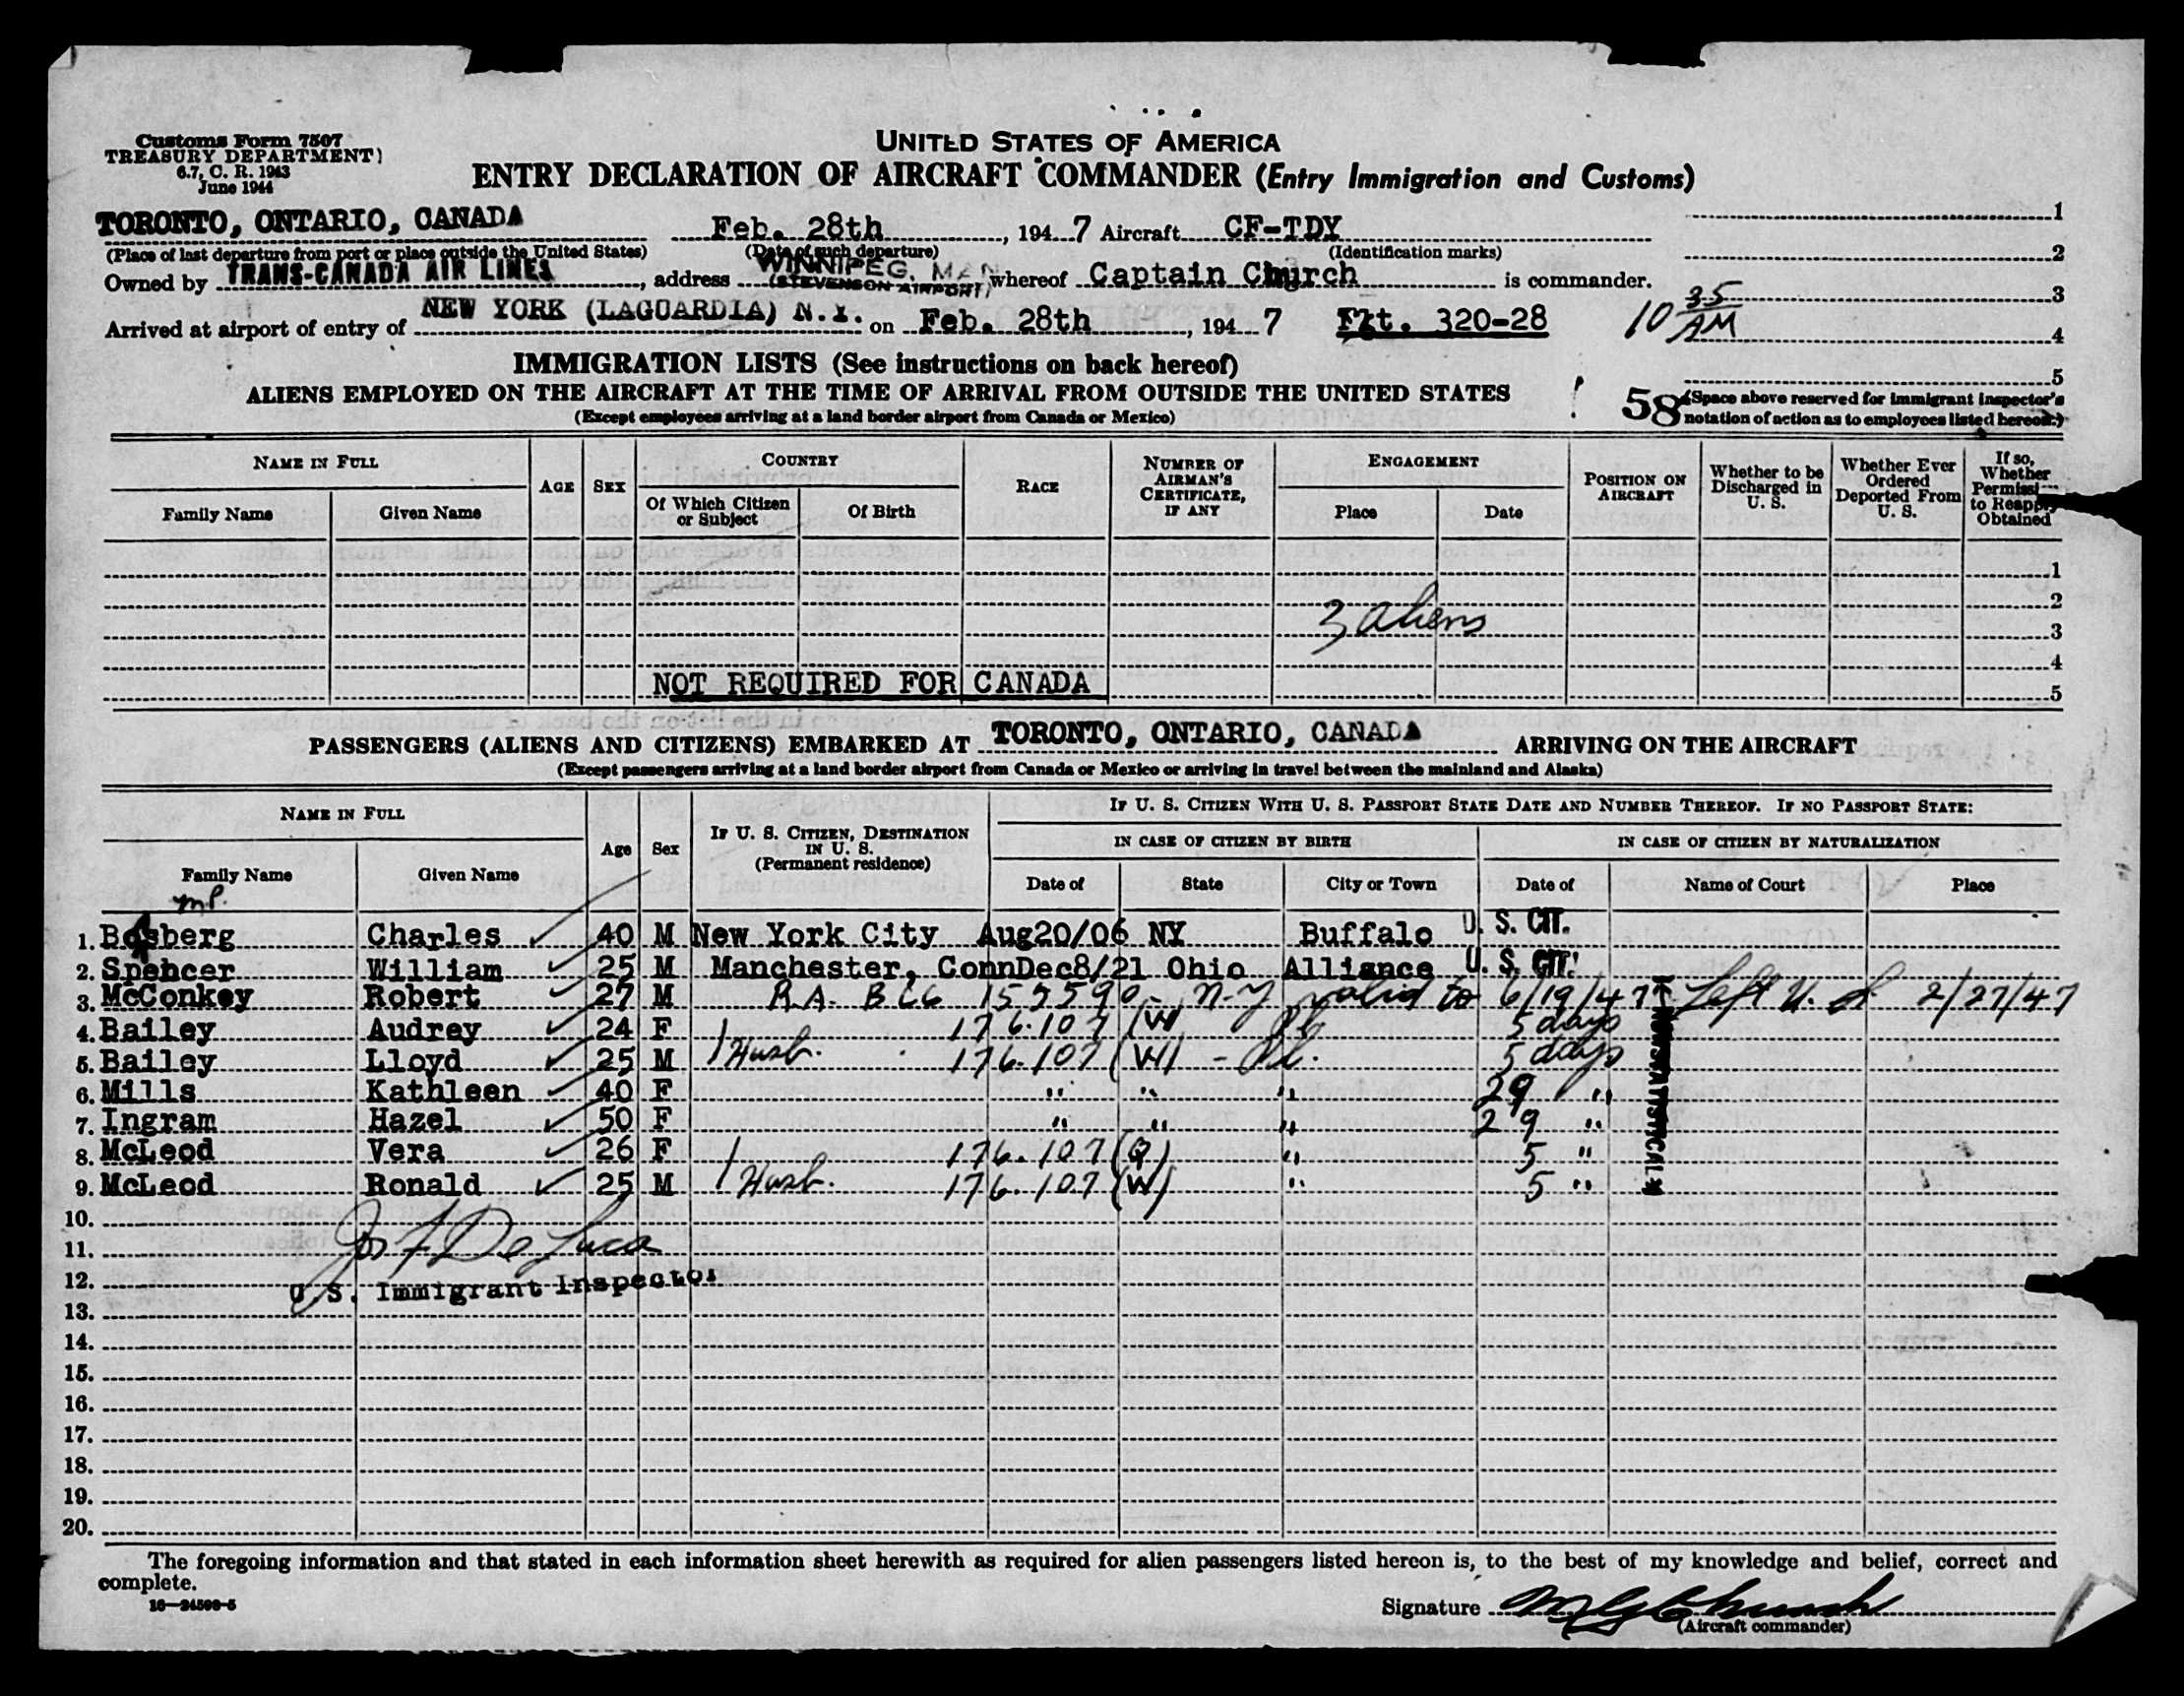 Customs Form 7507
TREASURY DEPARTMENT)
6.7, C. R. 1943
June 1944
UNITED STATES OF AMERICA
ENTRY DECLARATION OF AIRCRAFT COMMANDER (Entry Immigration and Customs)
TORONTO, ONTARIO, CANADA Feb. 28th, 1947 Aircraft CF-TDY 1
(Place of last departure from port or place outside the United States) (Date of such departure) (Identification marks) 2
Owned by TRANS-CANADA AIR LINES, address WINNIPEG, MAN (STEVENSON AIRPORT) whereof Captain Church is commander.
3
Arrived at airport of entry of NEW YORK (LAGUARDIA) N.Y. on Feb. 28th, 1947 Flt. 320-28 10 35 AM 4
IMMIGRATION LISTS (See instructions on back hereof)
5
ALIENS EMPLOYED ON THE AIRCRAFT AT THE TIME OF ARRIVAL FROM OUTSIDE THE UNITED STATES
(Except employees arriving at a land border airport from Canada or Mexico)
58 (Space above reserved for immigrant inspector's
notation of action as to employees listed hereon.)
NAME IN FULL
Family Name Given Name
AGE SEX
COUNTRY
Of Which Citizen or Subject Of Birth
RACE
NUMBER OF AIRMAN'S CERTIFICATE, IF ANY
ENGAGEMENT
Place Date
POSITION ON AIRCRAFT
Whether to be Discharged in U. S.
Whether Ever Ordered Deported From U. S.
If so, Whether Permissi to Reapply Obtained
1
2
3 aliens
3
4
NOT REQUIRED FOR CANADA 5
PASSENGERS (ALIENS AND CITIZENS) EMBARKED AT TORONTO, ONTARIO, CANADA ARRIVING ON THE AIRCRAFT
(Except passengers arriving at a land border airport from Canada or Mexico or arriving in travel between the mainland and Alaska)
NAME IN FULL
Family Name Given Name
Age Sex
IF U. S. CITIZEN, DESTINATION IN U. S.
(Permanent residence)
IF U. S. CITIZEN WITH U. S. PASSPORT STATE DATE AND NUMBER THEREOF. IF NO PASSPORT STATE:
IN CASE OF CITIZEN BY BIRTH IN CASE OF CITIZEN BY NATURALIZATION
Date of State City or Town Date of Name of Court Place
1. Charles 40 M New York City Aug20/06 NY Buffalo U. S. CIT.
2. Spencer William 25 M Manchester, Conn Dec8/21 Ohio Alliance U. S. CIT.
3. McConkey Robert 27 M R.A. N-Y valid to 6/19/47 Left U. S 2/27/47
4. Bailey Audrey 24 F 176.107 (W) 5 days
5. Bailey Lloyd 25 M Husb. 176.107 (W) 5 days
6. Mills Kathleen 40 F " " " 29 "
7. Ingram Hazel 50 F " " " 29 "
8. McLeod Vera 26 F 176.107 " 5 "
9. McLeod Ronald 25 M Husb. 176.107 (W) " 5 "
10.
11. Jos F De Luca
12. U.S. Immigrant Inspector
13.
14.
15.
16.
17.
18.
19.
20.
The foregoing information and that stated in each information sheet herewith as required for alien passengers listed hereon is, to the best of my knowledge and belief, correct and
complete.
Signature
(Aircraft commander)